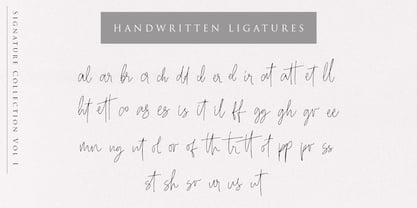 SIGNATURE COLLECTION VOL I
HANDWRITTEN LIGATURES
al ar br cr ch dd d er d ir at att et ll
ht ett co as es is it il ff gg gh go ee
mn ng nt ol ov of th tr tt ot pp po ss
st sh so ur us ut